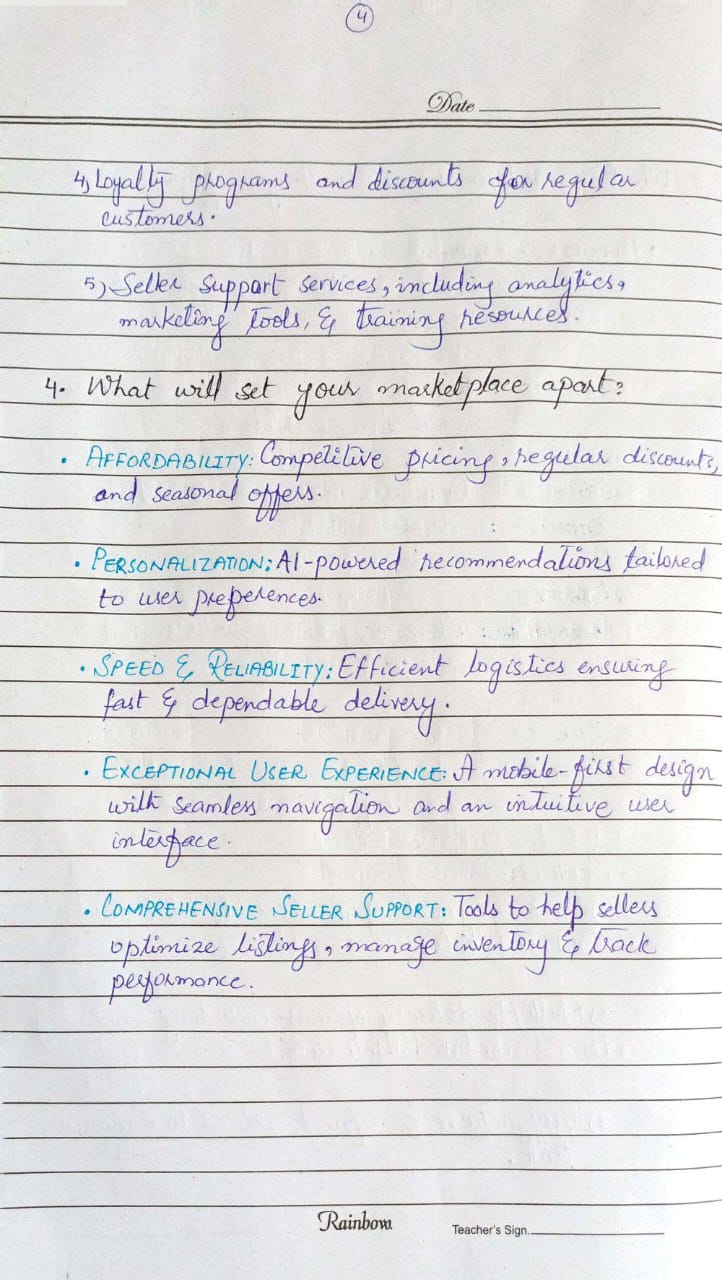 4
Date
4) Loyalty programs and discounts for regular
customers.
5) Seller support services, including analytics,
marketing tools, & training resources.
4. What will set your marketplace apart?
• AFFORDABILITY: Competitive pricing, regular discounts,
and seasonal offers.
• PERSONALIZATION: AI-powered recommendations tailored
to user preferences.
• SPEED & RELIABILITY: Efficient logistics ensuring
fast & dependable delivery.
• EXCEPTIONAL USER EXPERIENCE: A mobile-first design
with seamless navigation and an intuitive user
interface.
• COMPREHENSIVE SELLER SUPPORT: Tools to help sellers
optimize listings, manage inventory & track
performance.
Rainbow
Teacher's Sign.